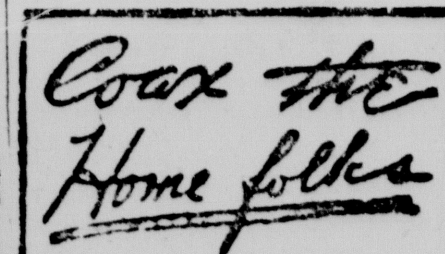 Coax the
Home folks